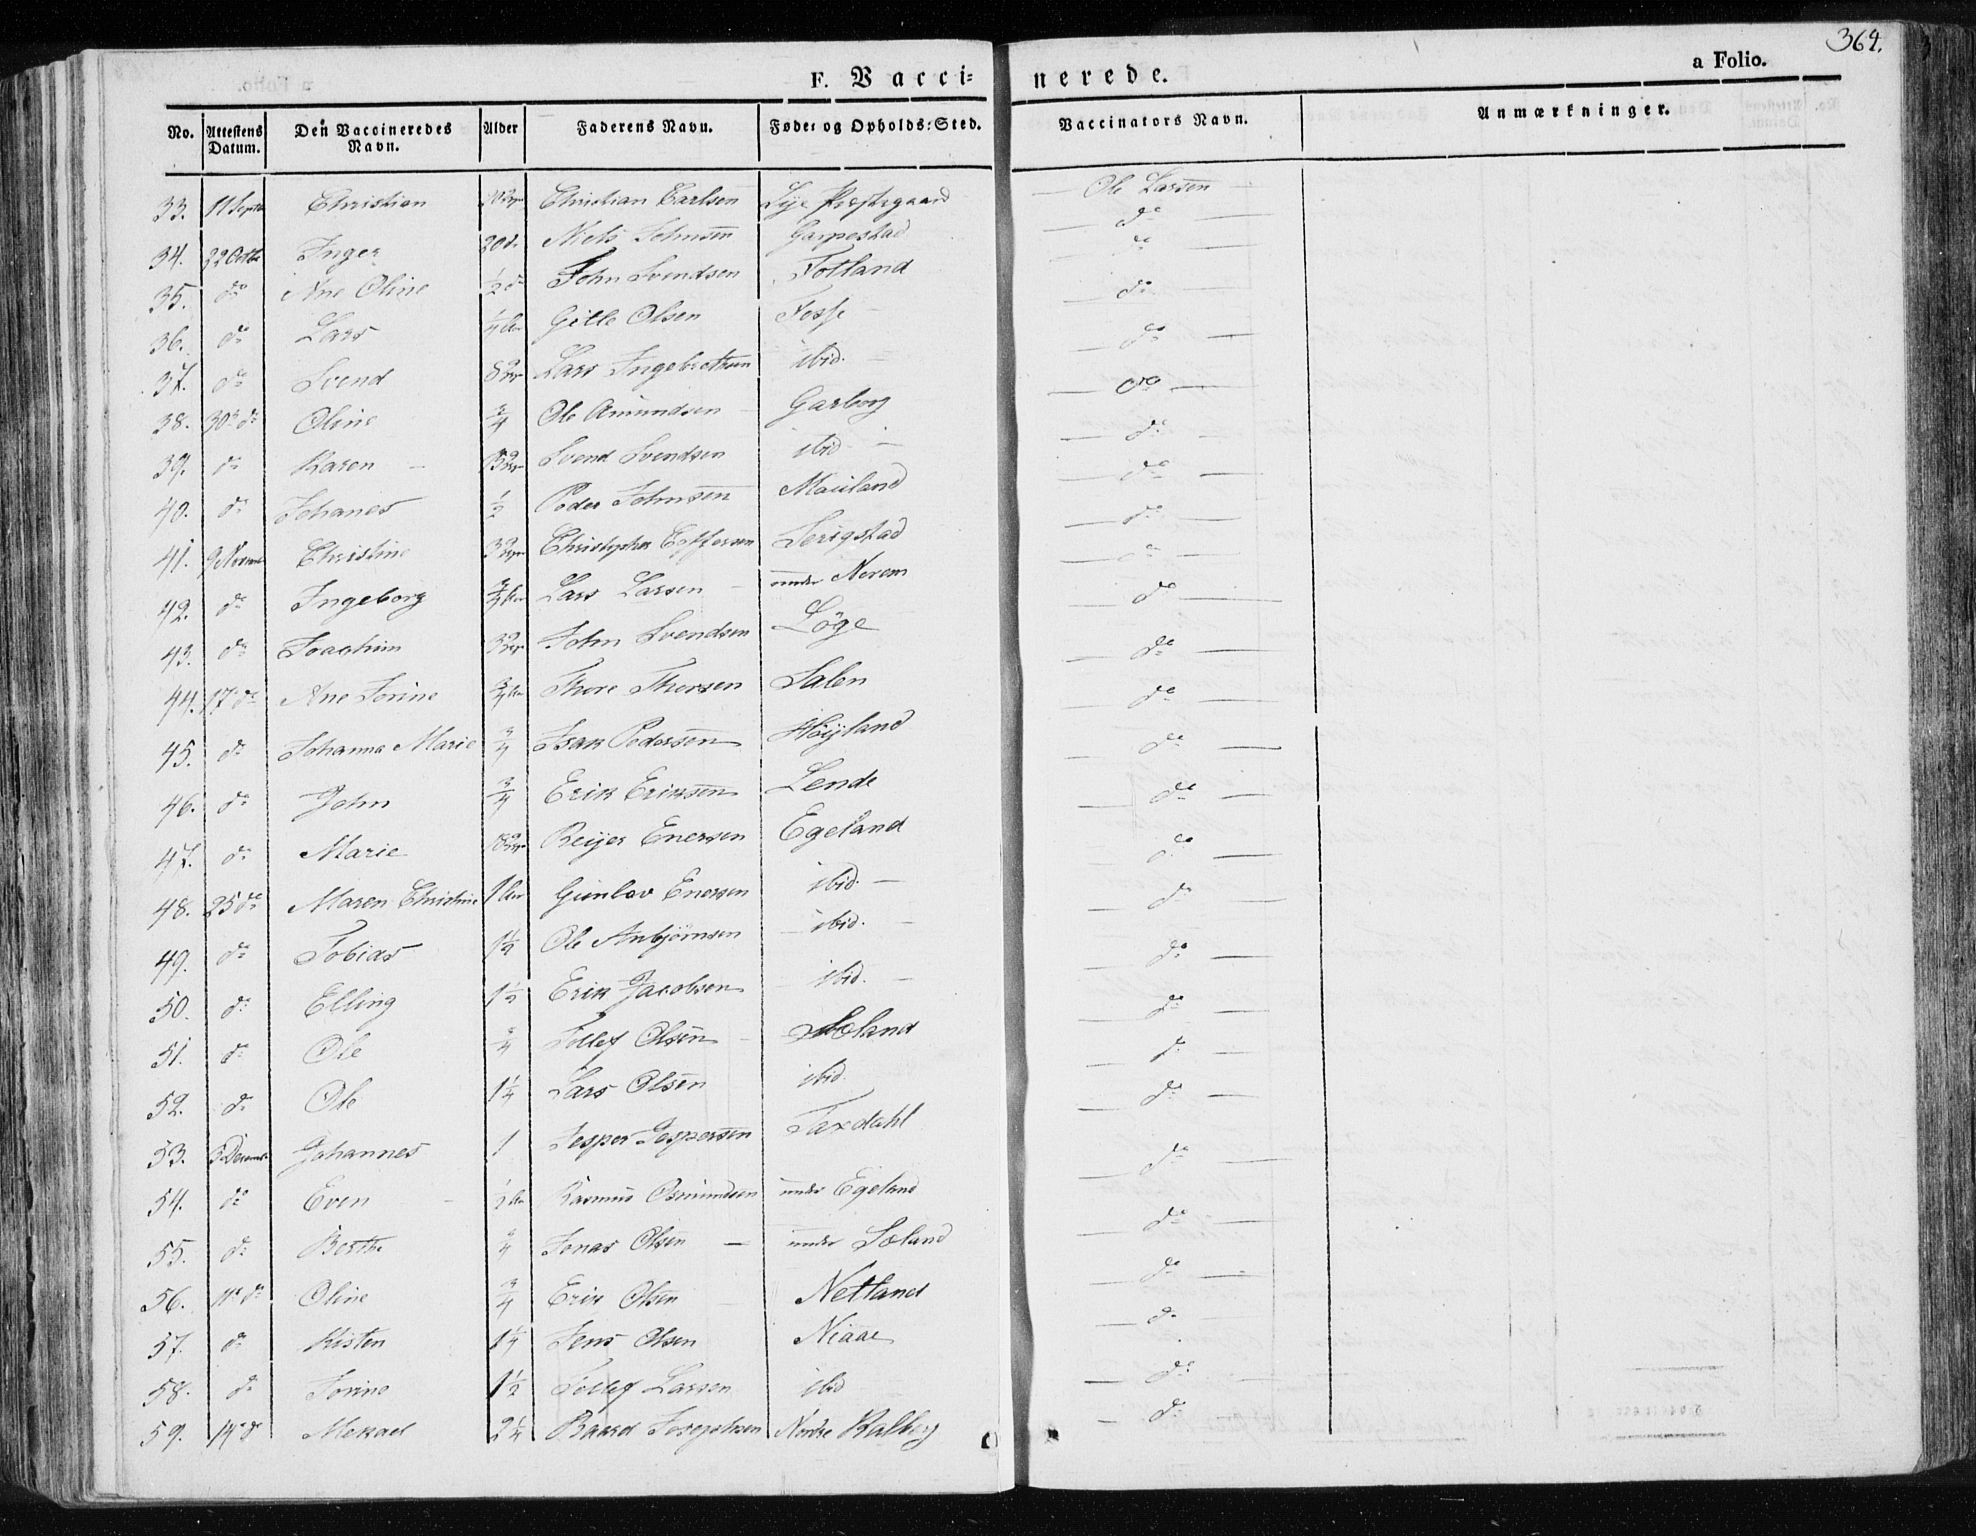 364.
F. Vacci- nerede. a Folio.
No. Attestens Datum. Den Vaccineredes Navn. Alder Faderens Navn. Føde: og Opholds: Sted. Vaccinators Navn. Anmærkninger.
33. 11 Septbr Christian Christian Carlsen Lye Præstegaard Ole Larsen
34. 22 Octbr Inger Niels Johnsen Garpestad do
35. do Ane Oline 1/2 do John Svendsen Totland do
36. do Lars 1/4 Aar Gitle Olsen Fosse do
37. do Svend Lars Ingebretsen ibid. do
38. 30 do Oline 3/4 Ole Amundsen Garborg do
39. do Karen Svend Svendsen ibid do
40. do Johanes 1/2 Peder Johnsen Mauland do
41. 9 Novembr Christine Christopher Serigstad do
42. do Ingeborg 3/4 Aar Lars Larsen under Nerem do
43. do Joachim John Svendsen Løge do
44. 17 do Ane Torine 3/4 Aar Thore Thorsen Salen do
45. do Johanna Marie 3/4 Isak Pedersen Høyland do
46. do John 3/4 Erik Eriksen Lende do
47. do Marie Reijer Enersen Egeland do
48. 25 do Maren Christine 1 Aar Gunlov Enersen ibid. do
49. do Tobias 1 1/2 Ole Anbjørnsen ibid. do
50. do Elling 1 1/2 Erik Jacobsen ibid. do
51. do Ole 3/4 Tollef Olsen Søland do
52. do Ole 1 1/4 Lars Olsen ibid. do
53. 5 Decembr Johannes 1 Jesper Jespersen Taxdahl do
54. do Even 1/2 Aar Rasmus Osmundsen under Egeland do
55. do Berthe 3/4 Jonas Olsen under Søland do
56. 11 do Oline 3/4 Erik Olsen Netland do
57. do Kisten 1 1/4 Jens Olsen Niaae do
58. do Torine 1 1/2 Tollef Larsen ibid do
59. 14 do Mekael 2 1/4 Baard Josephsen Nordre Kalberg do